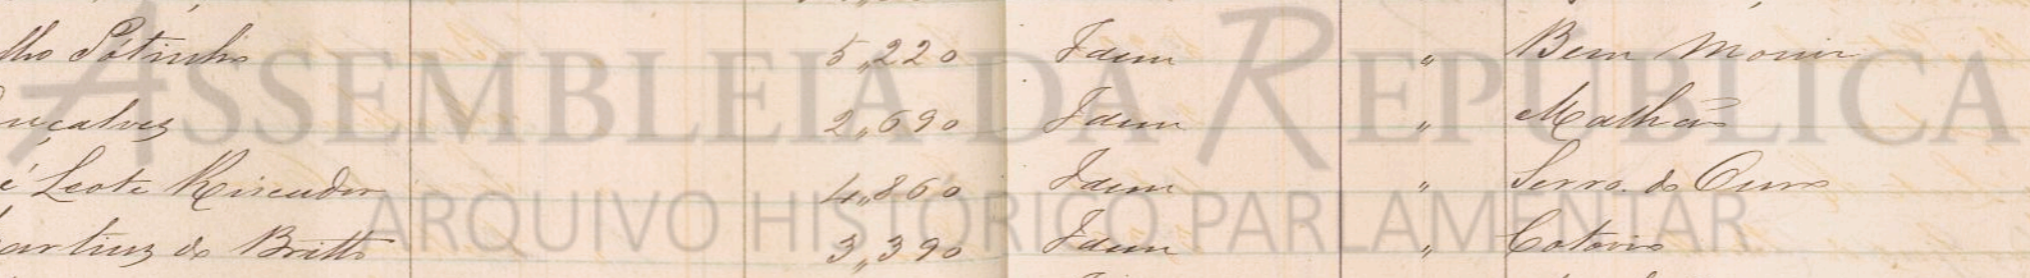 lho Pótinho 5,,220 Idem " Bem Monir
nçalves 2,,690 Idem " Malhão
é Leote Riscudor 4,,860 Idem " Serro do Ouro
artins de Britto 3,,390 Idem " Cotovio
ASSEMBLEIA DA REPÚBLICA
ARQUIVO HISTÓRICO PARLAMENTAR